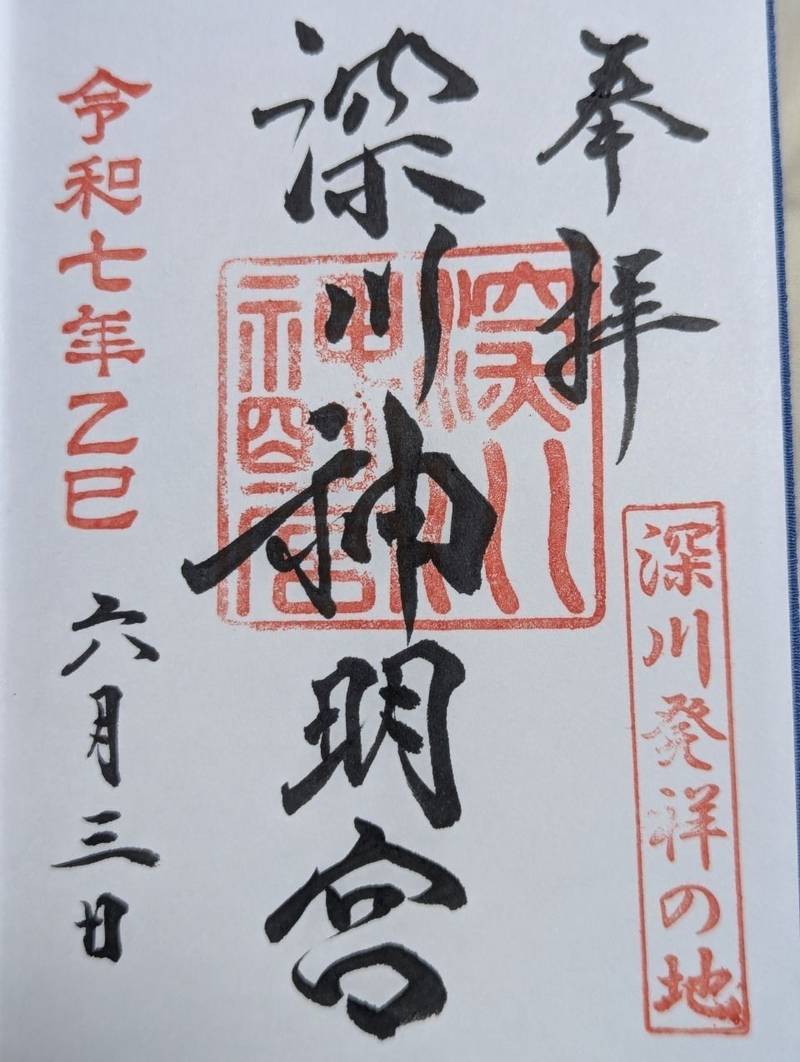 奉拝
深川発祥の地
深川神明宮
深川神明宮
令和七年乙巳
六月三日